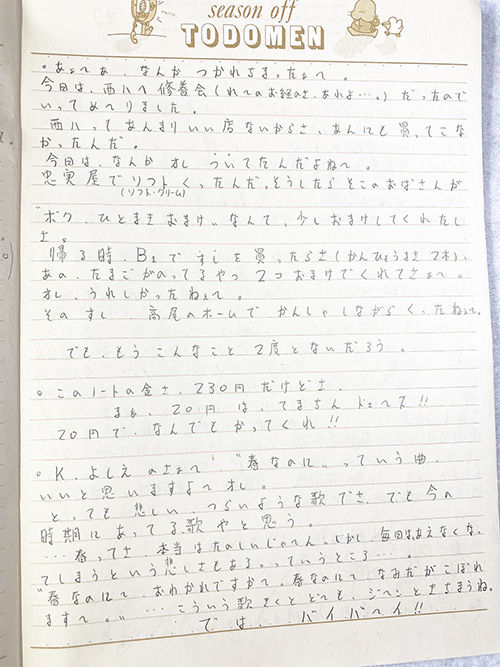 season off
TODOMEN
。あぁ〜あ、なんか つかれちまったぁ〜。
今日は、西八へ 修養会(れいのお経のさ、あれよ…。)だったので
いってめぇりました。
西八ってあんまりいい店ないからさ、あんにも買ってこな
かったんだ。
今日は、なんか オレ ツいてたんだよね〜。
忠実屋でソフト くったんだ。そうしたら そこのおばさんが
(ソフト・クリーム)
"ボク、ひとまきおまけ〟なんて、少しおまけしてくれたし
さ。
帰る時、B1ですしを買ったらさ(かんぴょうまき 2本)、
あの、たまごがのってるやつ 2コおまけでくれてさぁ〜。
オレ、うれしかったねぇ〜。
そのすし、高尾のホームで かんしゃしながら くったねぇ〜。
でも、もう こんなこと 2度とないだろう。
。このノートの金さ、230円だけどさ、
まぁ、20円は、てまちん ドェ〜ス!!
20円で、なんでもかってくれ!!
。K.よしえ のさぁ〜、"春なのに〟っていう曲、
いいと思いますよ〜オレ。
とっても 悲しい、つらいような歌でさ、でも今の
時期にあってる歌やと思う。
…春ってさ、本当はたのしいじゃん。しかし、毎日はあえなくな、
てしまうという悲しさもある。っていうところ…。
"春なのに〜、おわかれですか〜。春なのに〜、なみだがこぼれ
ます〜。〟…こういう歌きくと、とても、ジーンときちまうね。
では、バイバ〜イ!!